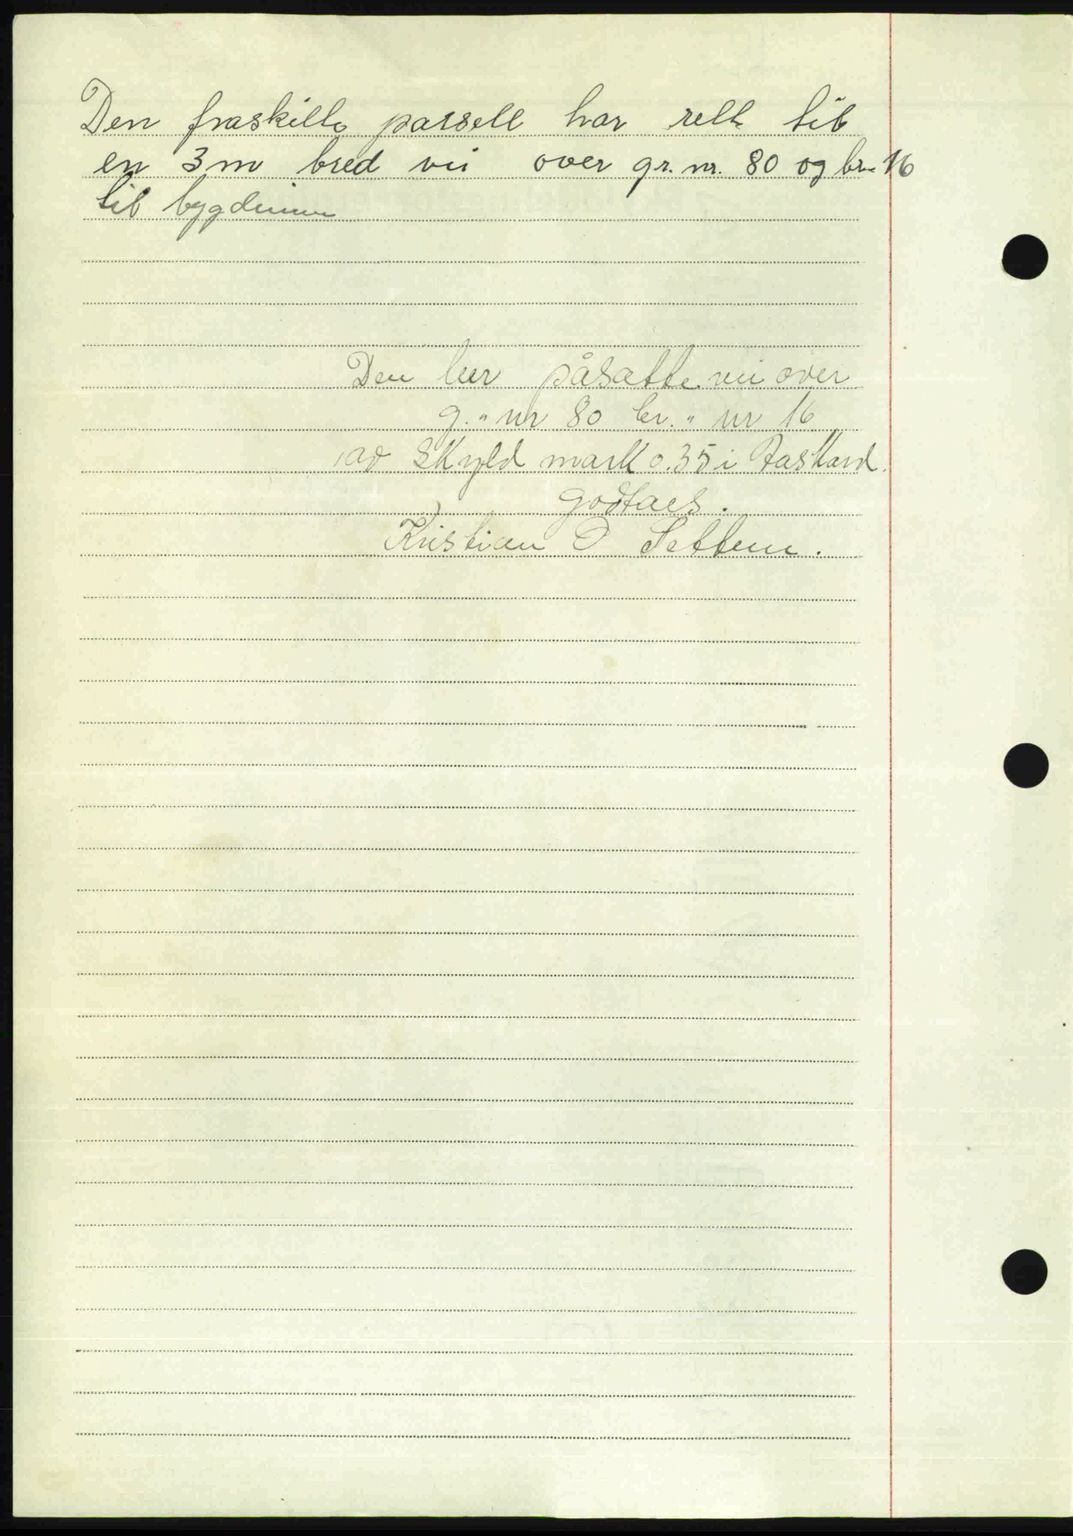 Den fraskilte parsell har rett til
en 3 m bred vei over gr. nr. 80 og br. 16
til bygdeveien
Den her påsatte vei over
g. " nr 80 br. " nr 16
av Skyld mark 0.35 i Aaskard.
godtaes.
Kristian O Settem.